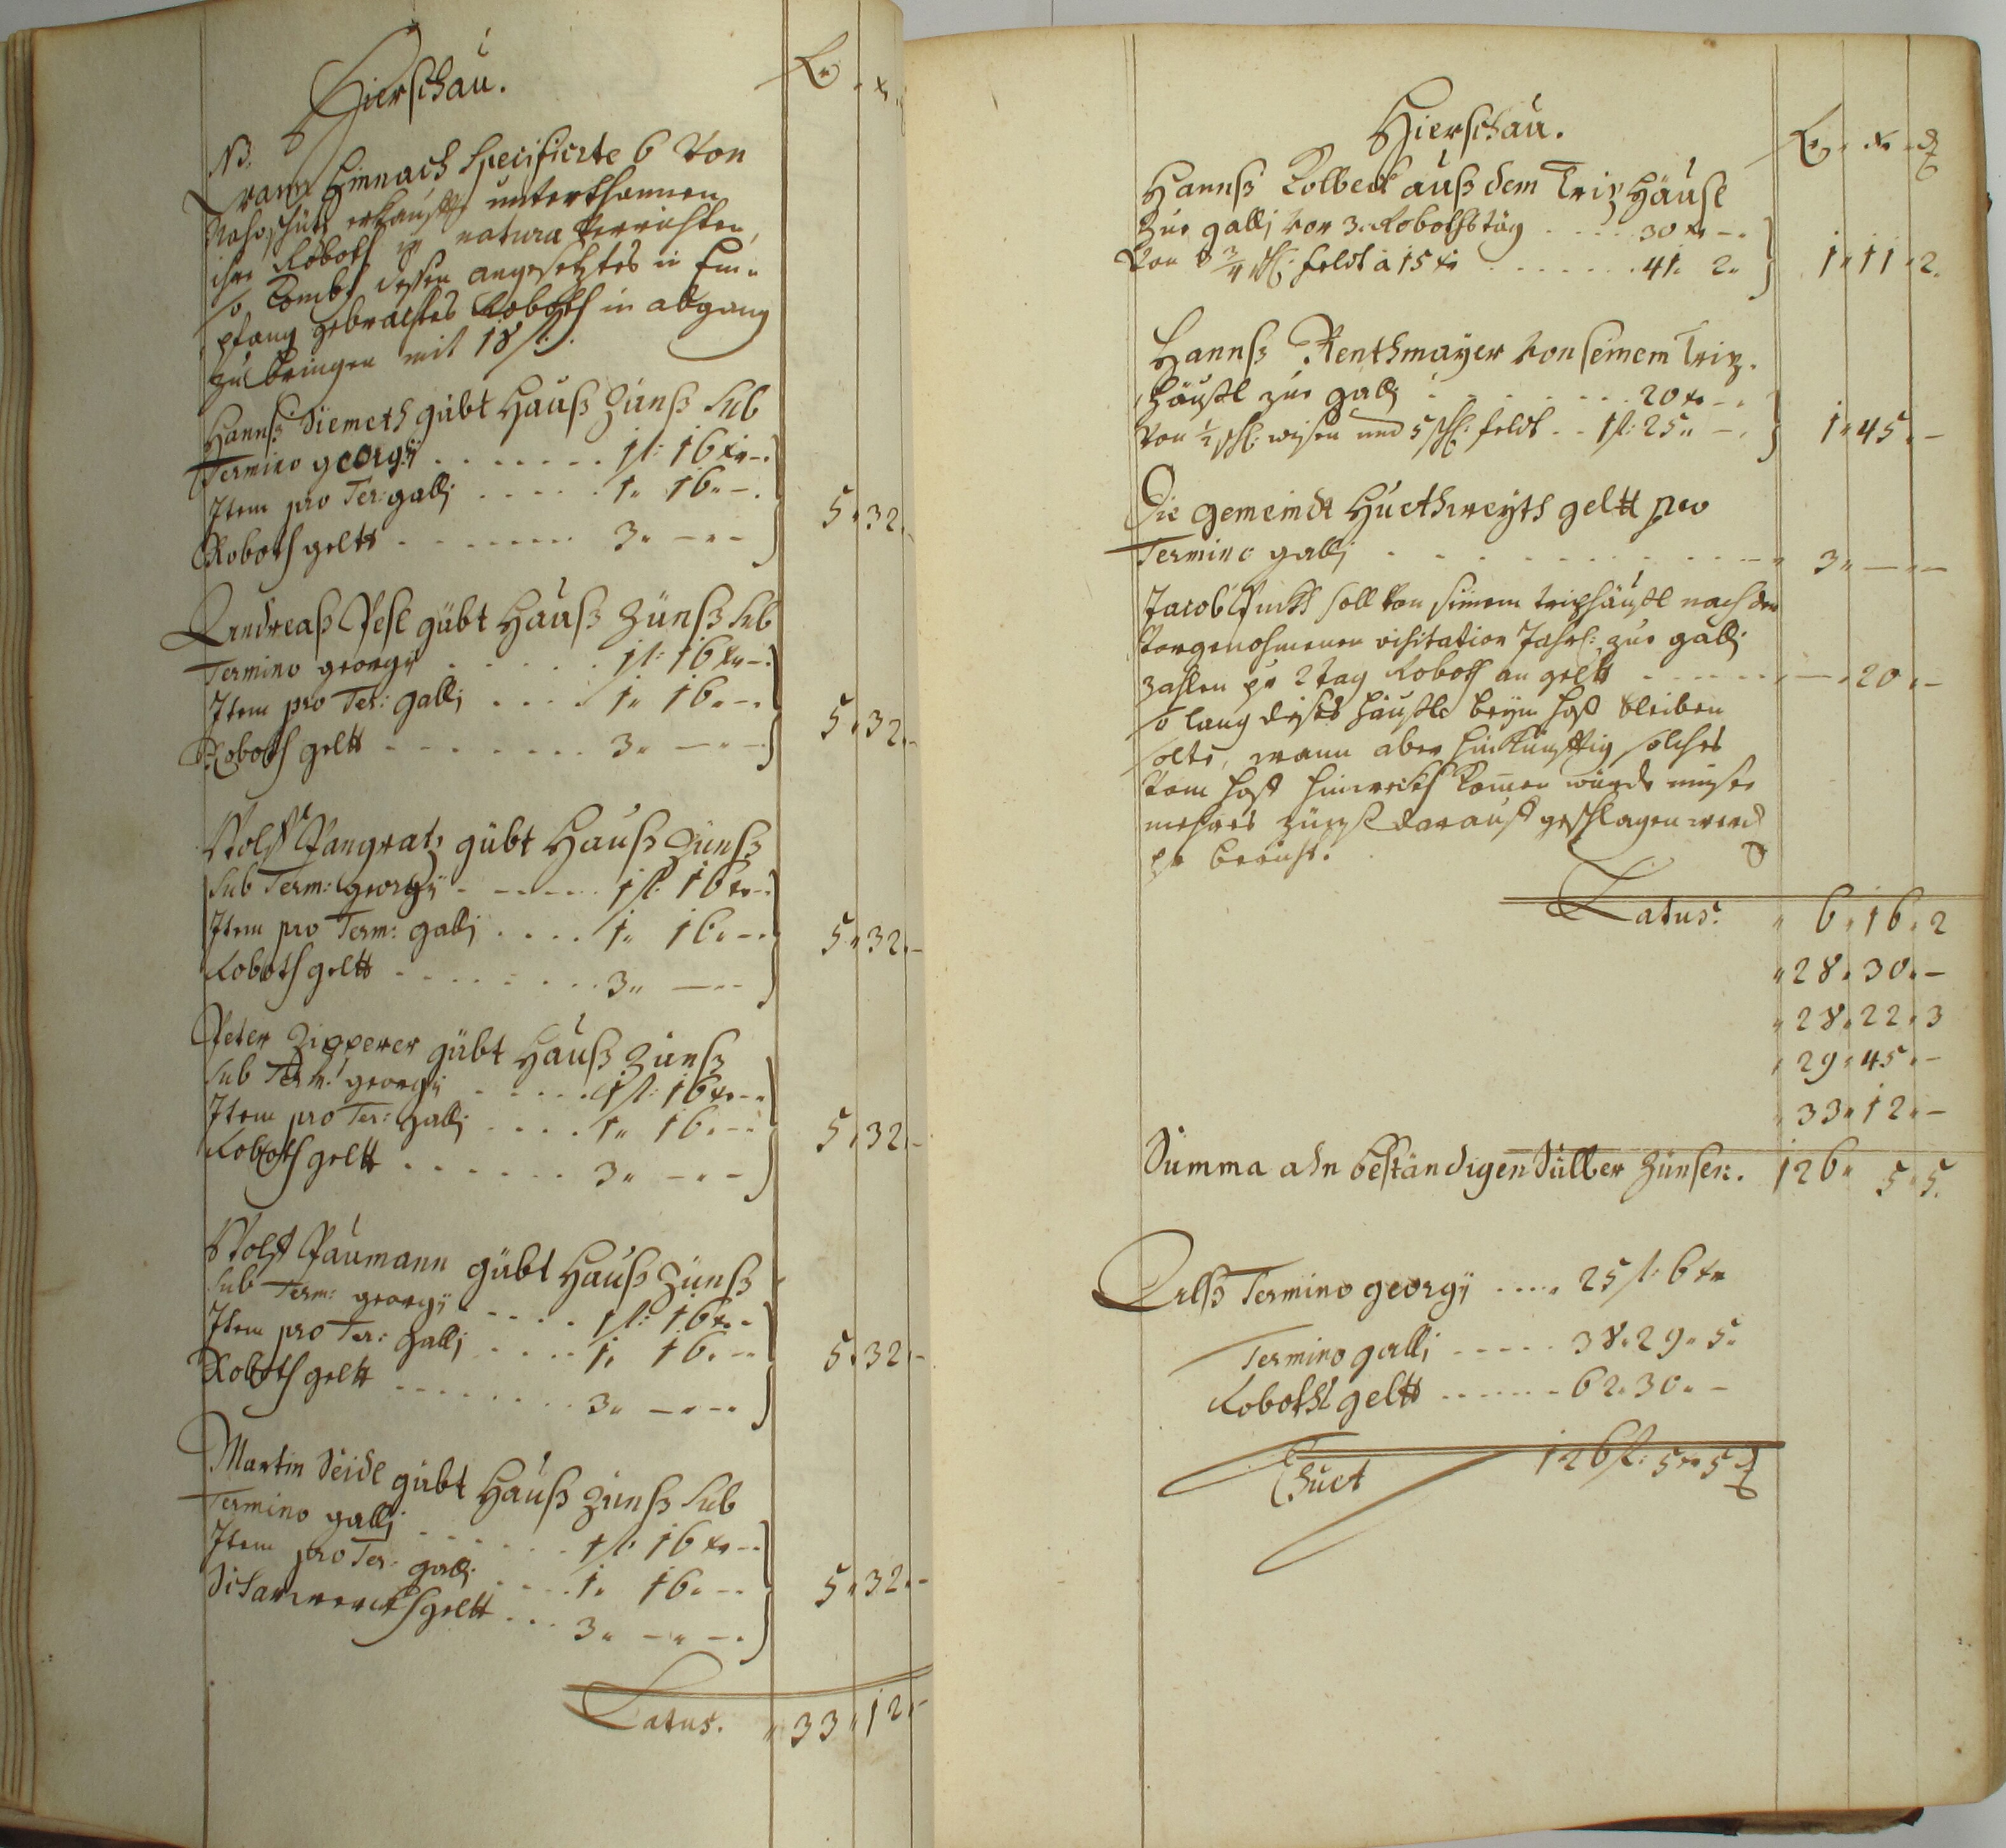 Hierschau.
fl x
NB.
Wann hinnach Specificirte 6 von
erkauffte unterthannen
ihre Roboth in natura verrichten,
so Kombt dessen angesetztes in Em-
pfang gebrachtes Roboth in abgang
zu bringen mit 18 fl:
Hannß Siemeth gübt Hauß Zünß sub
Termino georgÿ . . . . . . . 1 fl: 16 xr -.
Item pro Ter: galli . . . . . 1. 16. -.
Roboth geltt . . . . . . . . 3. - . -
5 . 32 . -
Andreaß Pesl gübt Hauß Zünß sub
Termino georgÿ . . . . . . 1 fl: 16 xr -.
Item pro Ter: galli . . . . 1. 16. -.
Roboth geltt . . . . . . . . 3. - . -
5 . 32 . -
Wolff Pangratz gübt Hauß Zünß
sub Term: georgÿ . . . . . . 1 fl. 16 xr -.
Item pro Term: galli . . . . 1. 16. -.
Roboth geltt . . . . . . . . 3. - . -
5 . 32 . -
Peter Zipperer gübt Hauß Zünß
sub Term: georgÿ . . . . . 1 fl: 16 xr -.
Item pro Ter: galli . . . . 1. 16. -.
Roboth geltt . . . . . . . 3. - . -
5 . 32 . -
Wolff Paumann gübt Hauß Zünß
sub Term: georgÿ . . . . 1 fl: 16 xr -
Item pro Ter: galli . . . . 1. 16. -
Roboth geltt . . . . . . . . 3. - . -
5 . 32 . -
Martin Seidl gübt Hauß Zünß sub
Termino galli . . . . . . 1 fl. 16 xr -.
Item pro Ter: galli . . . . 1. 16. -.
Scharwerchsgeltt . . . 3. - . -.
5 . 32 . -
Latus. 33 . 12 . -
Hierschau.
fl . xr . d
Hannß Kolbeck auß dem Triphäusl
Zur galli vor 3. Robothstäg . . . . 30 xr -.
Von 2 3/4 fell: feldt à 15 xr . . . . . . . 41. 2.
1 . 11 . 2.
Hannß Renthmayer von seinem Trip-
häußl zur galli . . . . . . . 20 xr -.
Von 1/2 wisen und 5 feldt . . 1 fl: 25. -.
1 . 45 . -
Die gemeindt Huethweyth geltt pro
Termino galli . . . . . . . . . . . 3. - . -
Jacob Fuchs soll von seinem triphäußl nach der
vorgenohmenen visitation Jahrl: zur galli
zahlen pr 2 tag Roboth an geltt . . . . . . - . 20 . -
so lang dises häußl beym hoff bleiben
solte, wann aber hinkünfftig solches
vom hoff hinweckh komen wurde müste
mehrers zünß darauff geschlagen werd
pr bericht.
Latus. 6 . 16 . 2
28 . 30 . -
28 . 22 . 3
29 . 45 . -
33 . 12 . -
Summa aln beständigen Silber Zünsen. 126 . 5 . 5.
Alß Termino georgÿ . . . . 25 fl: 6 xr
Termino galli . . . . . 38. 29. 5.
Roboth geltt . . . . . . . 62. 30. -
Thuet 126 fl: 5 xr 5 d